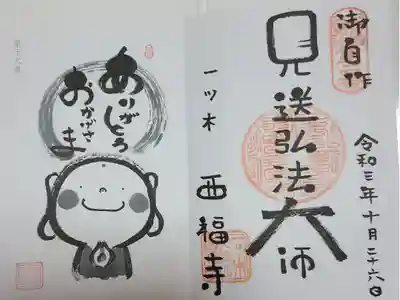 御自作
見送弘法大師
一ツ木
西福寺
令和三年十月二十六日
第十九番
ありがとう
おかげさま